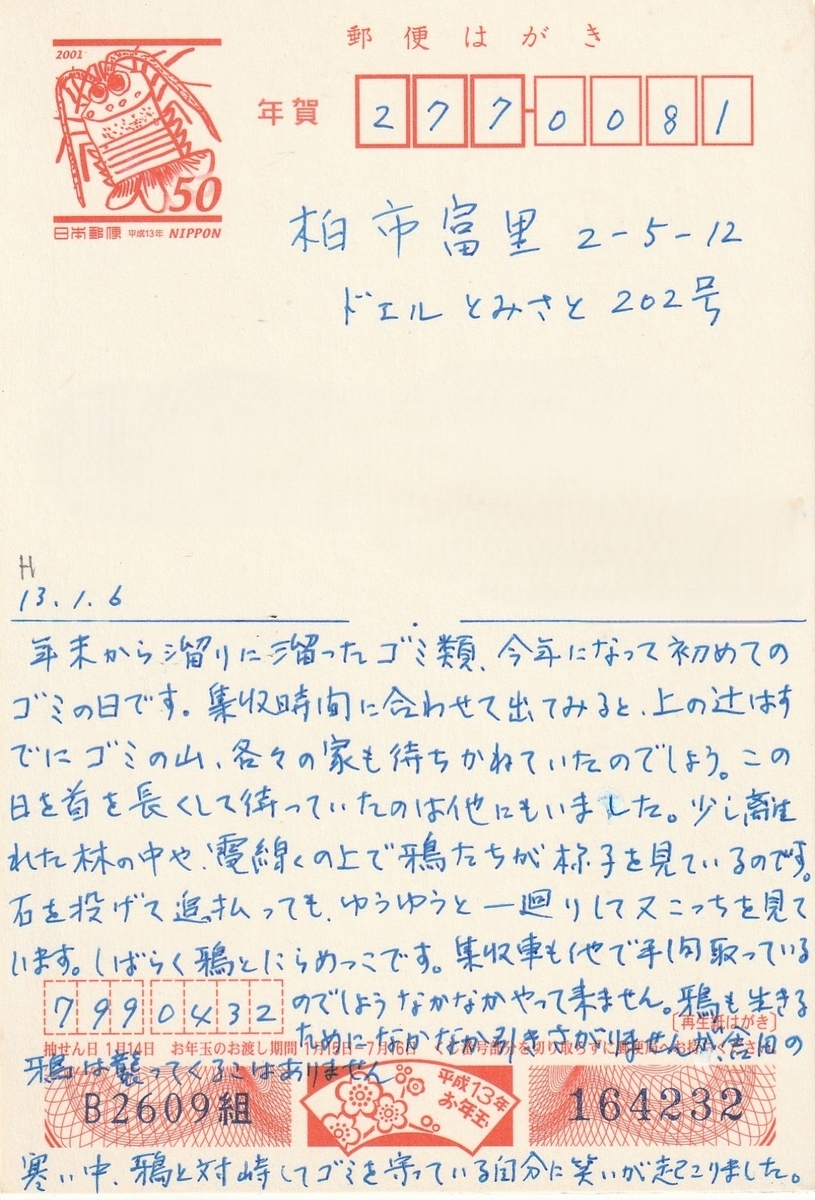 郵便はがき
2001
年賀
277-0081
50
日本郵便 平成13年 NIPPON
柏市富里 2-5-12
ドエルとみさと 202号
H
13.1.6
年末から溜りに溜ったゴミ類、今年になって初めての
ゴミの日です。集収時間に合わせて出てみると、上の辻はす
でにゴミの山、各々の家も待ちかねていたのでしょう。この
日を首を長くして待っていたのは他にもいました。少し離
れた林の中や、電線の上で鴉たちが様子を見ているのです。
石を投げて追払っても、ゆうゆうと一廻りして又こっちを見て
います。しばらく鴉とにらめっこです。集収車も他で手間取っている
のでしょうなかなかやって来ません。鴉も生きる
799 0432
再生紙はがき
ためになかなか引きさがりませんが、の
抽せん日 1月14日 お年玉のお渡し期間 1月15日-7月16日
鴉は襲ってくるこはありません
B2609組
平成13年
お年玉
164232
寒い中、鴉と対峙してゴミを守っている自分に笑いが起こりました。